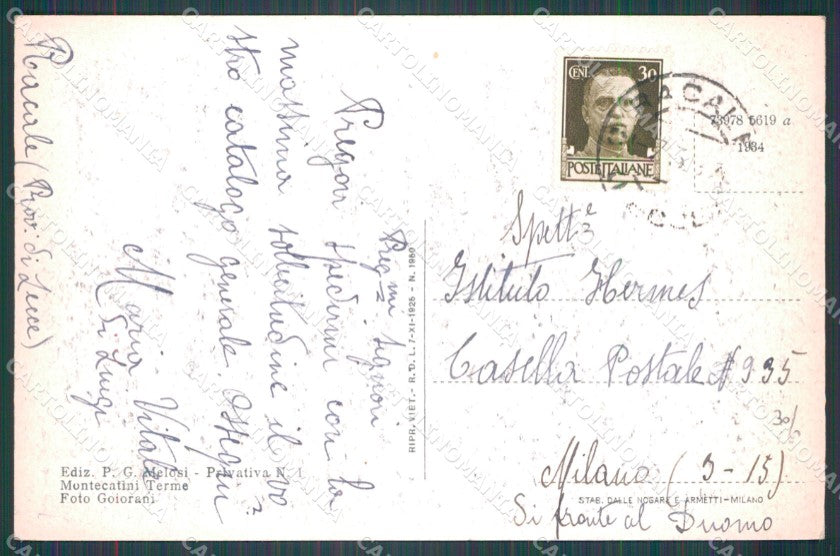 Racale (Prov. di Lecce)
Preg=mi Signori
Pregovi spedirmi con la
massima sollecitudine il vo
stro catalogo generale.
Maria Vitali
di Luigi
RIPR. VIET. - R. D. L. 7-XI-1925 - N. 1950
Ediz. P. G. Melosi - Privativa N. 1
Montecatini Terme
Foto Goiorani
CENT. 30
POSTE ITALIANE
RACALE
73978 5619 a
1934
Spett=e
Istituto Hermes
Casella Postale N 935
30/
Milano (3-15)
STAB. DALLE NOGARE E ARMETTI - MILANO
Di fronte al Duomo
CARTOLINOMANIA